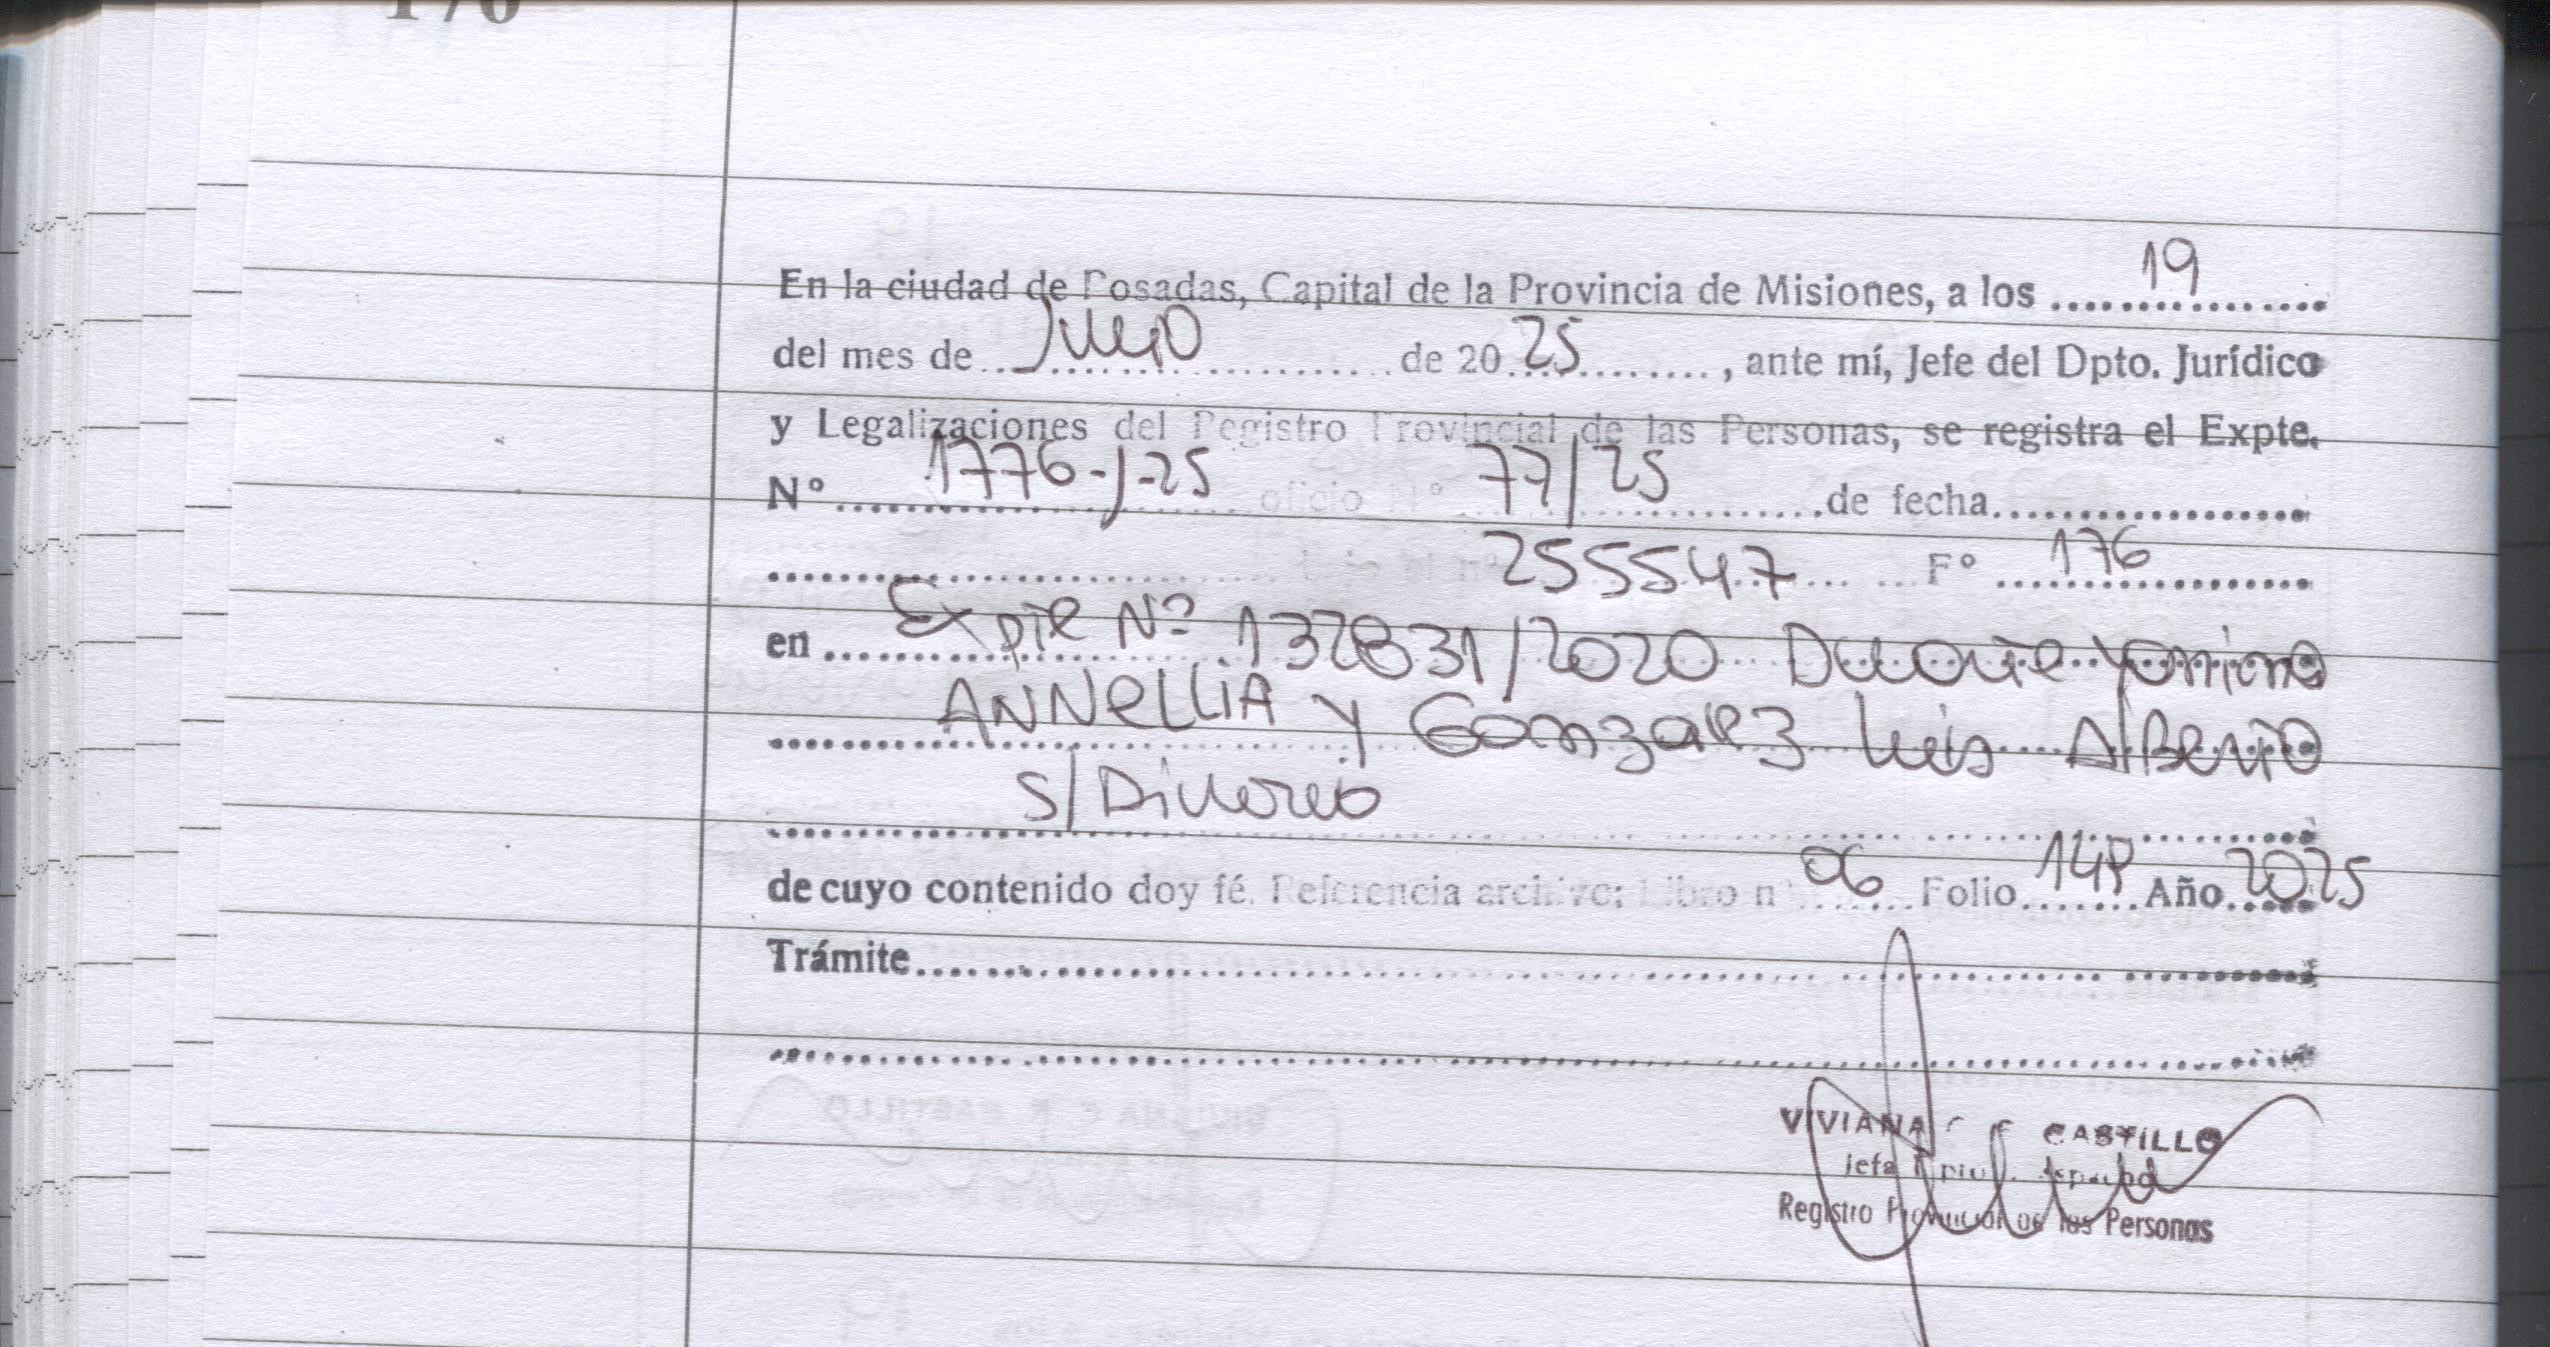 176
En la ciudad de Posadas, Capital de la Provincia de Misiones, a los 19
del mes de Junio de 2025, ante mí, Jefe del Dpto. Jurídico
y Legalizaciones del Registro Provincial de las Personas, se registra el Expte.
Nº 1776-J-25 oficio Nº 77/25 de fecha
255547 Fº 176
en Expte Nº 132831/2020 Duarte Yanina
ANNELLIA y Gonzalez Luis Alberto
s/Divorcio
de cuyo contenido doy fé. Referencia archivo: Libro nº 06 Folio 148 Año 2025
Trámite
VIVIANA CASTILLO
Jefa
Registro Provincial de las Personas